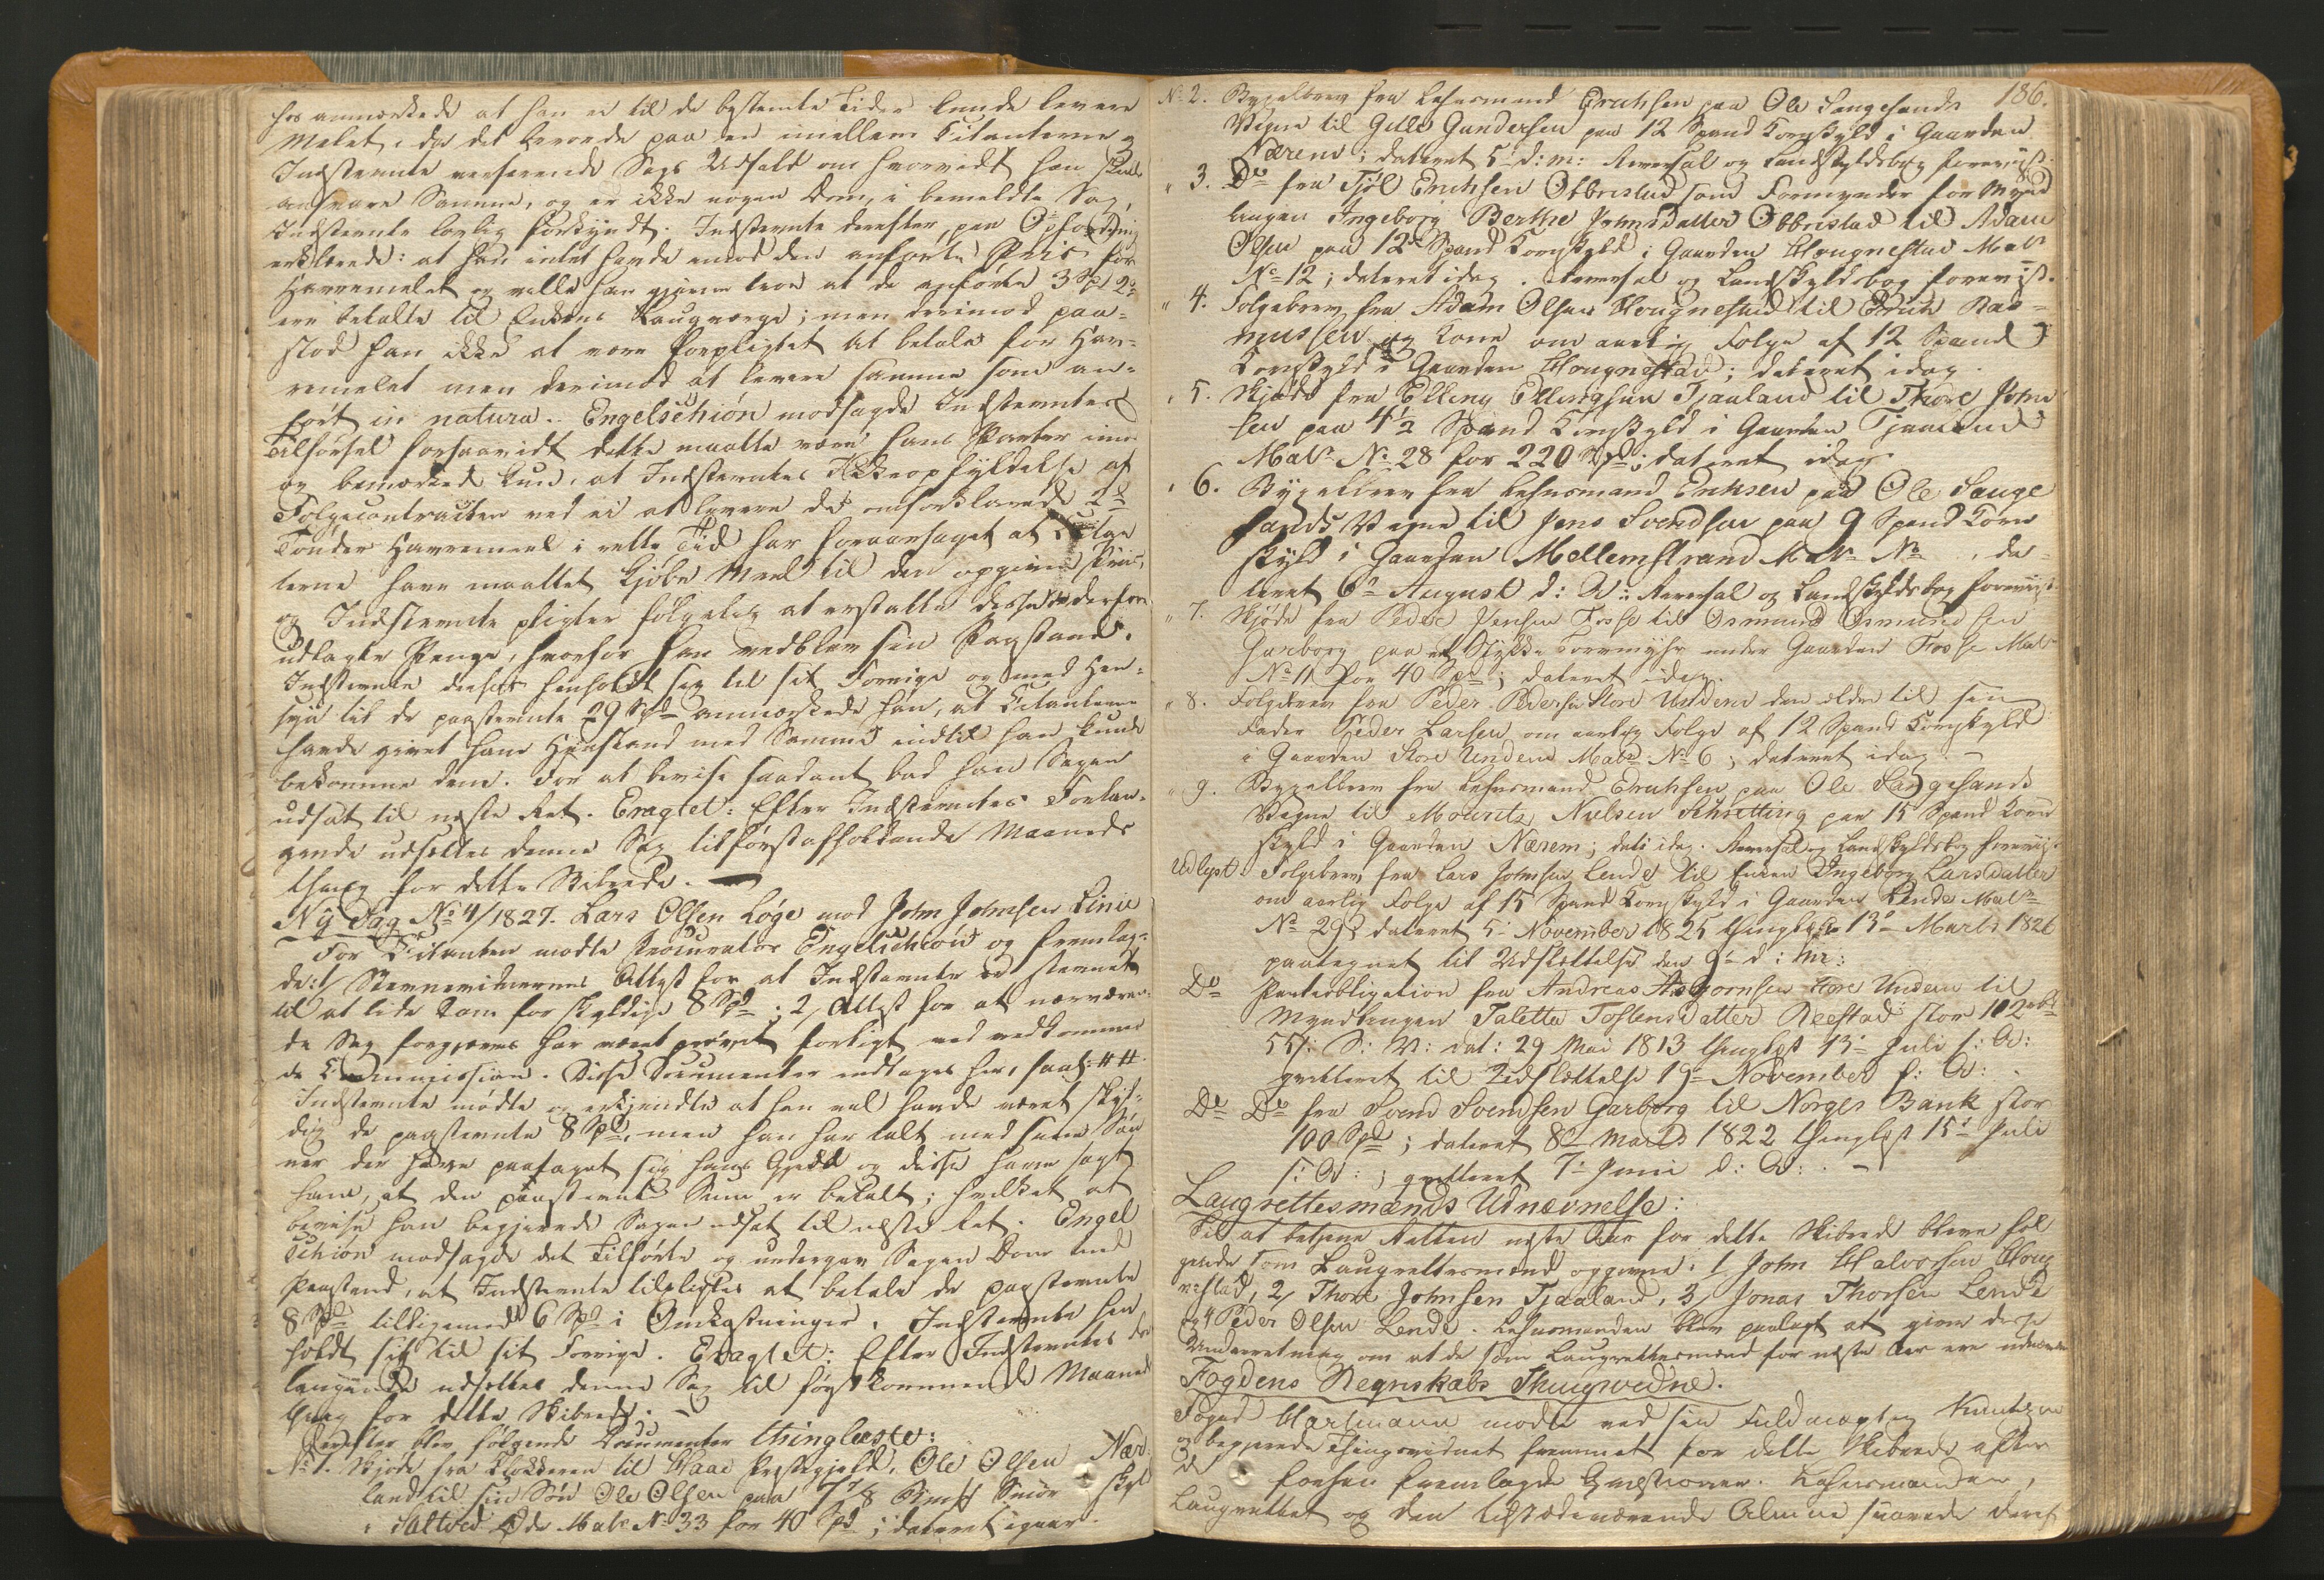 hos anmærkede at han ei til de bestemte Tider kunde levere
Melet, da det beroede paa en imellem Citanterne og
Indstevnte verserende Sags Udfald om hvorvidt han skulde
ansvare Samme, og er ikke nogen Dom, i bemeldte Sag,
Indstevnte lovlig forkyndt. Indstevnte derefter, paa Opfordring
erklærede: at han intet havde imod den anførte Priis for
Havremelet og vilde han gjerne troe at de anførte 3 Spd 2
ere betalte til Enkens Laugværge; men derimod paa-
stod han ikke at være forpligtet at betale for Hav-
remelet men derimod at levere samme som an-
ført in natura. Engelschiøn modsagde Indstevntes
Tilførsel forsaavidt dette maatte være hans Parter imod
og bemærkede kun, at Indstevntes Ikkeopfyldelse af
Folgecontracten ved ei at levere de omforklarede 2de
Tønder Havremeel i rette Tid har foraarsaget at Citan-
terne have maattet kjøbe Meel til den opgivne Priis,
og Indstevnte pligter følgelig at erstatte disse derfor
udlagte Penge, hvorfor han vedblev sin Paastand.
Indstevnte henholdt sig til sit Forrige og med Hen-
syn til de paastevnte 29 Spd anmærkede han, at Citanterne
havde givet ham Henstand med Samme indtil han kunde
bekomme dem. For at bevise saadant bad han Sagen
udsat til neste Ret. Eragtet: Efter Indstevntes Forlan-
gende udsættes denne Sag til førstafholdende Maaneds
thing for dette Skibrede. —
Ny Sag No 4/1827. Lars Olsen Løge mod John Johnsen Linie
For Citanten mødte Procurator Engelschiøn og fremlag-
de: 1, Stevnevidnernes Attest for at Indstevnte er stevnet
til at lide Dom for skyldige 8 Spd; 2, Attest for at nærværen-
de Sag forgjeves har været prøvet forligt ved vedkommen-
de Commission. Disse Documenter indtages her, saal: ##.
Indstevnte mødte og erkjendte at han vel havde været skyl-
dig de paastevnte 8 Spd, men han har talt med sine Søn-
ner der have paataget sig hans Gjæld og disse have sagt
ham, at den paastevnte Sum er betalt; hvilket at
bevise han begjerede Sagen udsat til neste Ret. Engel
schiøn modsagde det Tilførte og undergav Sagen Dom med
Paastand, at Indstevnte tilpligtes at betale de paastevnte
8 Spd tilligemed 6 Spd i Omkostninger. Indstevnte hen
holdt sig til sit Forrige. Eragtet: Efter Indstevntes For
langende udsættes denne Sag til førstkommende Maaneds
thing for dette Skibrede.
Derefter blev følgende Documenter thinglæste:
No 1. Skjøde fra Klokkeren til Haae Prestegjeld, Ole Olsen Nær
land til sin Søn Ole Olsen paa 7 7/8 Smør skyl
i Saltved Øde Matr No 33 for 40 Spd; dateret igaar.
186.
No 2. Bygselbrev fra Lehnsmand Erichsen paa Ole Sangesands
Vegne til Gitle Gundersen paa 12 Spand Kornskyld i Gaarden
Nærem; dateret 5 d: m: Reversal og Landskyldsbog foreviist.
" 3. Do fra Tjøl Erichsen Obbrestad som Formynder for Mynd
lingen Ingeborg Berthe Johnsdatter Obbrestad til Adam
Olsen paa 12 Spand Kornskyld i Gaarden Hougnestad Matr
No 12; dateret idag. Reversal og Landskyldsbog foreviist.
" 4. Folgebrev fra Adam Olsen Hougnestad til Erich Ras-
mussen og Kone om aarlig Folge af 12 Spand
Kornskyld i Gaarden Hougnestad; dateret idag.
" 5. Skjøde fra Elling Ellingsen Tjaaland til Thore John
sen paa 4 1/2 Spand Kornskyld i Gaarden Tjaaland
Matr No 28 for 220 Spd; dateret idag.
" 6. Bygselbrev fra Lehnsmand Erichsen paa Ole Sange
sands Vegne til Jens Svendsen paa 9 Spand Korn
skyld i Gaarden Mellemstrand Matr No , da-
teret 6 August d: A: Reversal og Landskyldsbog foreviist
" 7. Skjøde fra Peder Jensen Fosse til Osmund Osmundsen
Garborg paa et Stykke Torvmyhr under Gaarden Fosse Matr
No 11 for 40 Spd; dateret idag.
" 8. Folgebrev fra Peder Pedersen Store Undem den ældre til sin
Fader Peder Larsen om aarlig Folge af 12 Spand Kornskyld
i Gaarden Store Undem Matr No 6; dateret idag —
" 9. Bygselbrev fra Lehnsmand Erichsen paa Ole Sangesands
Vegne til Mourits Nielsen Schretting paa 15 Spand Korn
skyld i Gaarden Nærem; dat: idag. Reversal og Landskyldsbog foreviist
Udlyst. Folgebrev fra Lars Johnsen Lende til Enken Ingeborg Larsdatter
om aarlig Folge af 15 Spand Kornskyld i Gaarden Lende Matr
No 29, dateret 5 November 1825 thinglæst 13 Marts 1826
paategnet til Udslettelse den 9 d: M:
Do Panteobligation fra Andreas Asbjørnsen Store Undem til
Myndlingen Taletta Tostensdatter Reestad stor 102 rbd
55 s: S: V: dat: 29 Mai 1813 thinglæst 13 Juli s: A:
qvitteret til Udslettelse 19 November f: A:
Do Do fra Svend Svendsen Garborg til Norges Bank stor
100 Spd; dateret 8 Marts 1822 thinglæst 15 Juli
s: A: ; qvitteret 7 Juni d: A: . —
Laugrettesmænds Udnævnelse:
Til at betjene Retten neste Aar for dette Skibrede bleve føl
gende som Laugrettesmænd opgivne: 1, John Halvorsen Houg
nestad, 2, Thore Johnsen Tjaaland, 3, Jonas Thorsen Lende
og 4 Peder Olsen Lende. Lehnsmanden blev paalagt at give disse
Underretning om at de som Laugrettesmænd for neste Aar ere udnævnte
Fogdens Regnskabs Thingsvidne.
Foged Hartmann mødte ved sin Fuldmægtig Knutzen
og begjerede Thingsvidnet fremmet for dette Skibrede efter
de forhen fremlagde Qvæstioner. Lehnsmanden,
Laugrettet og den tilstædeværende Almue svarede dertil